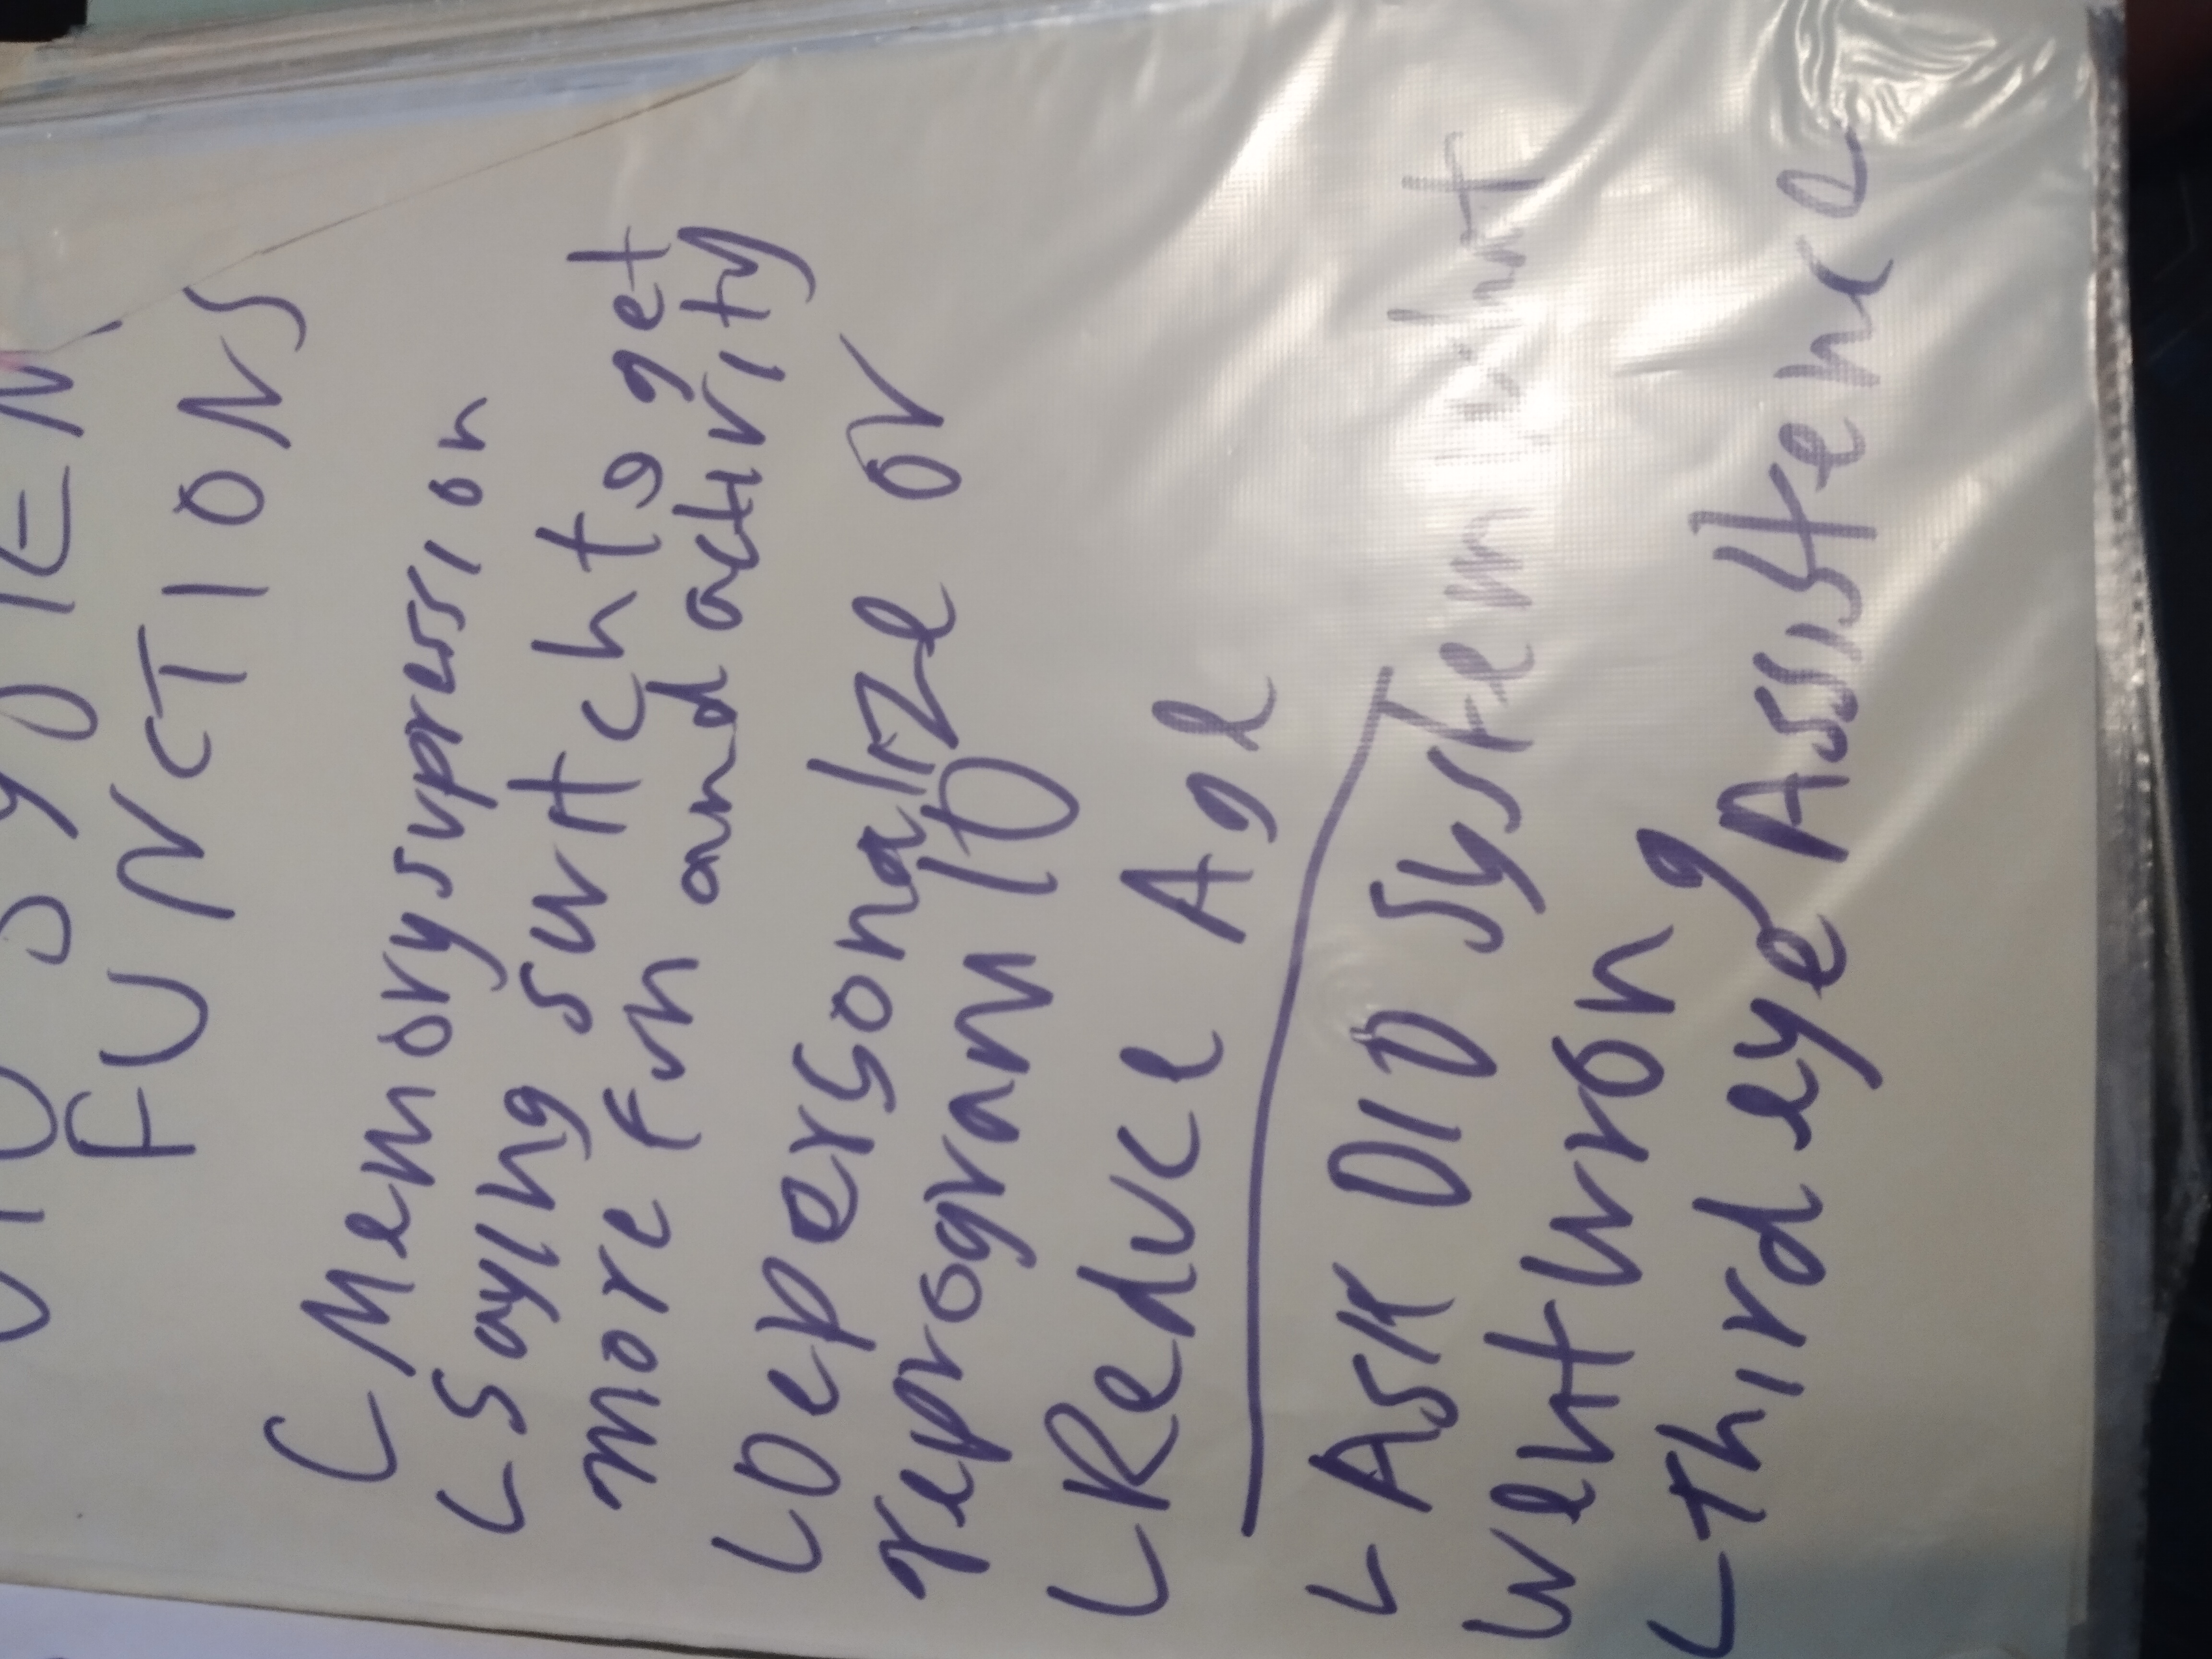 FUNCTIONS
L Memory supression
L Saying switch to get
more Fun and activity
L Depersonalize or
reprogram ID
L Reduce Age
L Ask DID System what
went wrong
L Third eye Assistence